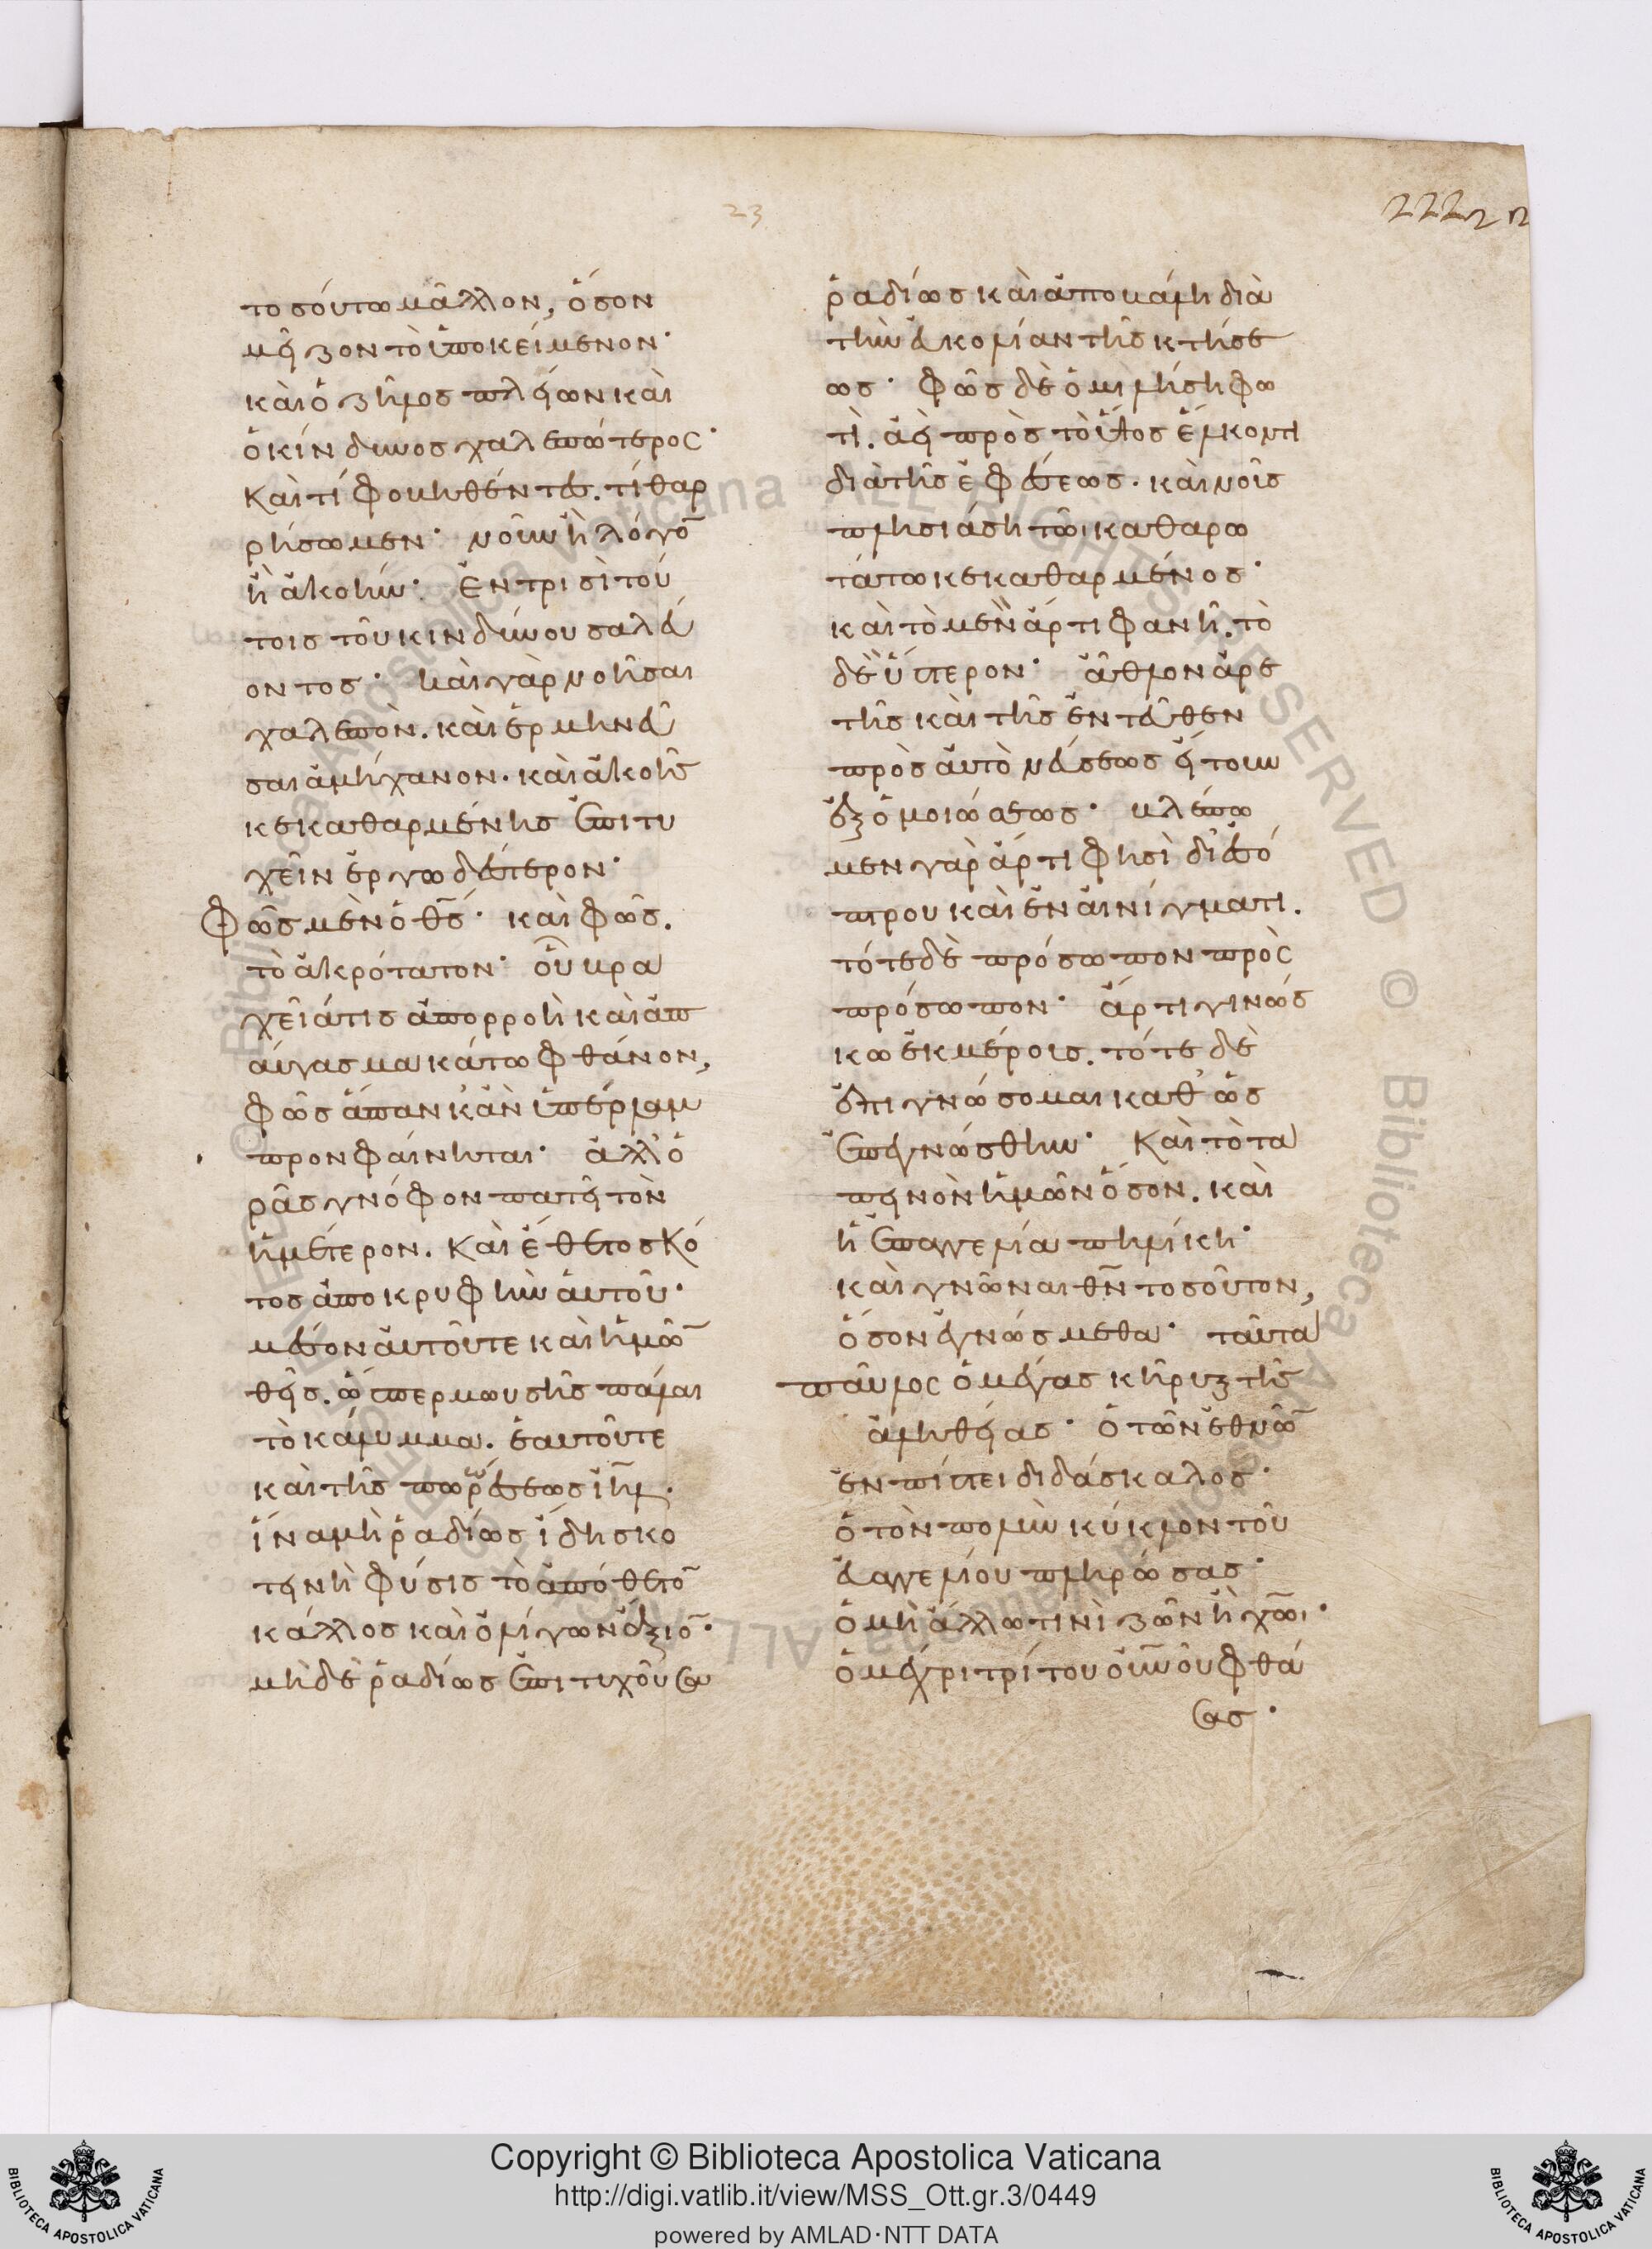 23
τοσούτω μᾶλλον, ὅσον
μεῖζον τὸ ὑποκείμενον·
καὶ ὁ ζῆλος πλείων καὶ
ὁ κίνδυνος χαλεπώτερος·
Καὶ τί φοβηθέντες. τί θαρ
ρήσωμεν· νοῦν ἢ λόγο̅
ἢ ἀκοήν· ἐν τρισὶ τού
τοις τοῦ κινδύνου σαλεύ
οντος· καὶ γὰρ νοῆσαι
χαλεπὸν. καὶ ἑρμηνεῦ
σαι ἀμήχανον. καὶ ἀκοῆς
κεκαθαρμένης ἐπιτυ
χεῖν ἐργωδέστερον·
Φῶς μὲν ὁ θ̅ς· καὶ φῶς.
τὸ ἀκρότατον· οὗ βρα
χεῖά τις ἀπορροὴ καὶ ἀπ
αύγασμα κάτω φθάνον,
φῶς ἅπαν κἂν ὑπέρλαμ
προν φαίνηται· ἀλλ' ὁ
ρᾶς γνόφον πατεῖ τὸν
ἡμέτερον. Καὶ ἔθετο σκό
τος ἀποκρυφὴν αὐτοῦ·
μέσον αὐτοῦ τε καὶ ἡμῶ̅
θεὶς. ὥσπερ μωυσῆς πάλαι
τὸ κάλυμμα. ἑαυτοῦ τε
καὶ τῆς πωρώσεως ἰη̅λ.
ἵνα μὴ ῥαδίως ἴδῃ σκο
τεινὴ φύσις τὸ ἀπόθετο̅
κάλλος καὶ ὀλίγων ἄξιο̅·
μὴ δὲ ῥαδίως ἐπιτυχοῦσα
ῥαδίως καὶ ἀποβάλῃ διὰ
τὴν εὐκολίαν τῆς κτήσε
ως· φῶς δὲ ὁμιλήσῃ φω
τὶ. ἀεὶ πρὸς τὸ ὕψος ἕλκοντι
διὰ τῆς ἐφέσεως. καὶ νοῦς
πλησιάσῃ τῶι καθαρω
τάτω κεκαθαρμένος·
καὶ τὸ μὲν ἄρτι φανῇ. τὸ
δὲ ὕστερον· ἆθλον ἀρε
τῆς καὶ τῆς ἐντεῦθεν
πρὸς αὐτὸ νεύσεως εἴτουν
ἐξομοιώσεως· βλέπω
μεν γὰρ ἄρτι φησὶ δι' ἐσό
πτρου καὶ ἐν αἰνίγματι.
τότε δὲ πρόσωπον πρὸς
πρόσωπον· ἄρτι γινώσ
κω ἐκ μέρους. τότε δὲ
ἐπιγνώσομαι καθ' ὡς
ἐπεγνώσθην· Καὶ τὸ τα
πεινὸν ἡμῶν ὅσον. καὶ
ἡ ἐπαγγελία πηλίκη·
καὶ γνῶναι θ̅ν τοσοῦτον,
ὅσον ἐγνώσμεθα· ταῦτα
παῦλος ὁ μέγας κῆρυξ τῆς
ἀληθείας· ὁ τῶν ἐθνῶ̅
ἐν πίστει διδάσκαλος·
ὁ τὸν πολὺν κύκλον τοῦ
εὐαγγελίου πληρώσας·
ὁ μὴ ἄλλω τινὶ ζῶν ἢ χ̅ω·
ὁ μέχρι τρίτου οὐ̅νου φθά
σας·
Copyright © Biblioteca Apostolica Vaticana
http://digi.vatlib.it/view/MSS_Ott.gr.3/0449
powered by AMLAD·NTT DATA